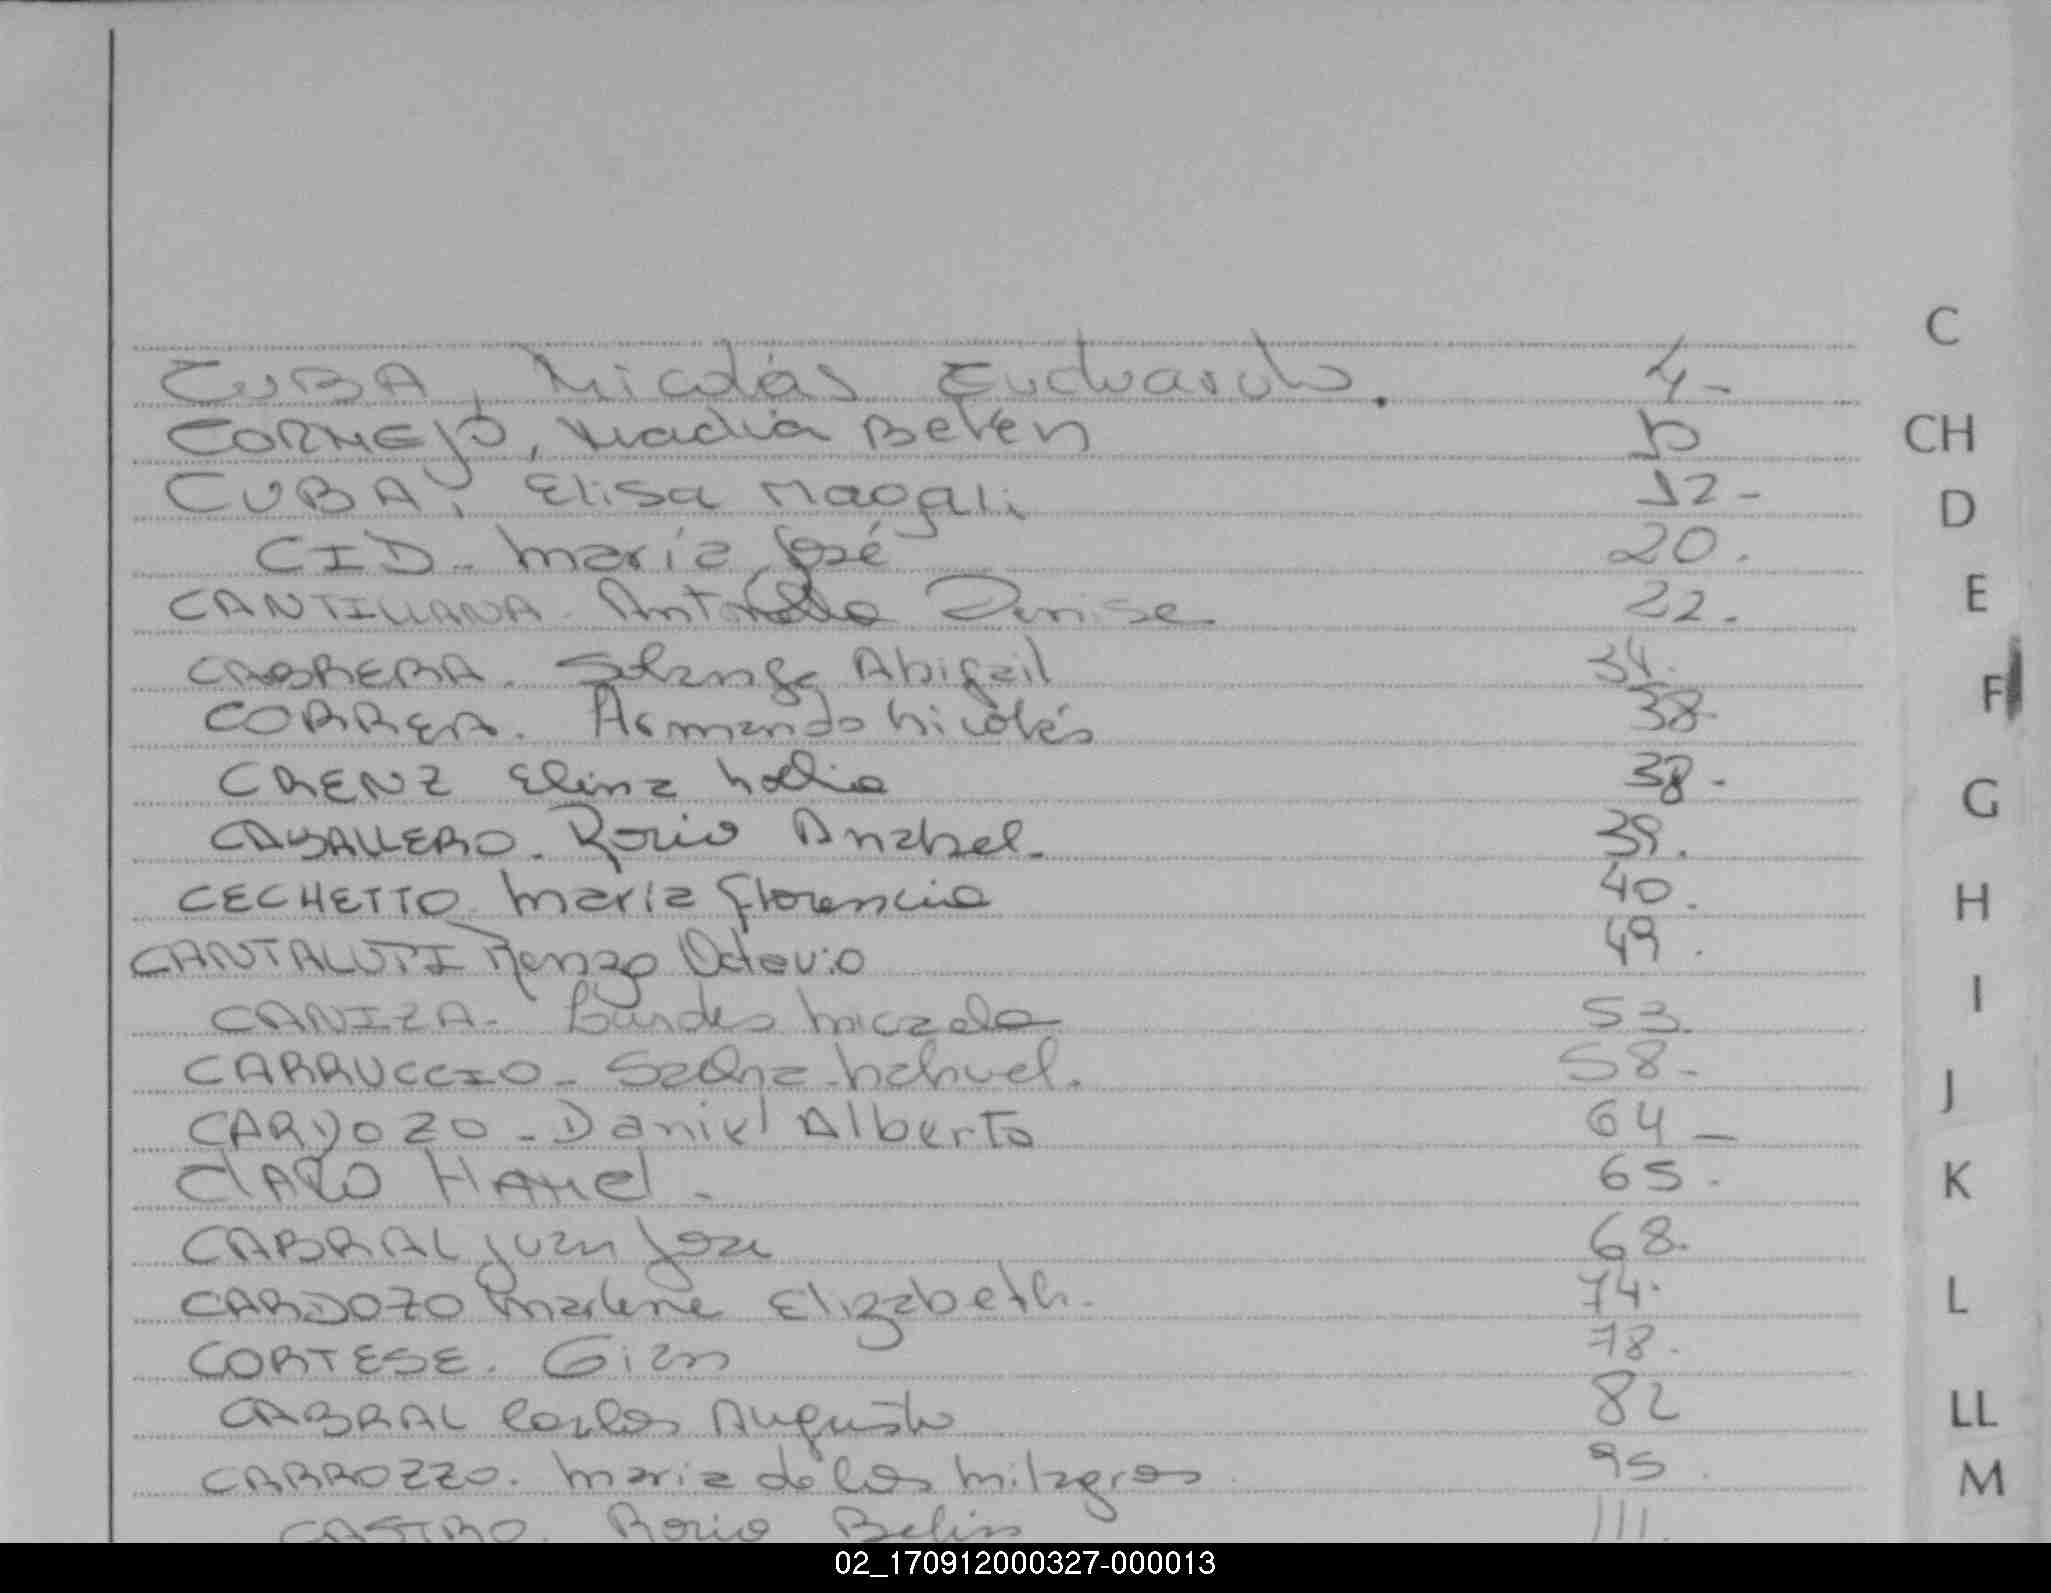 C
CUBA, Nicolás Eduardo. 4-
CORNEJO, Nadia Belén 10
CH
CUBA, Elisa Magali 12-
D
CID- María José 20.
CANTILLANA- Antonella Denise 22.
E
CABRERA. Solange Abigail 34.
F
CORREA. Armando Nicolás 38-
CRENZ Elina Noelia 38.
G
CABALLERO- Rocio Anabel. 39.
CECHETTO María Florencia 40.
H
CANTALUPI Renzo Octavio 49.
CANIZA- Lourdes Micaela 53.
I
CARRUCCIO- Nahuel. 58-
J
CARDOZO- Daniel Alberto 64-
CLARO HAMEL. 65.
K
CABRAL Juan Jose 68.
CARDOZO Marlene Elizabeth. 74.
L
CORTESE. Gian 78.
CABRAL Carlos Augusto 82
LL
CARROZZO. Maria de los Milagros. 95.
M
CASTRO. Rocio Belén 111.
02_170912000327-000013